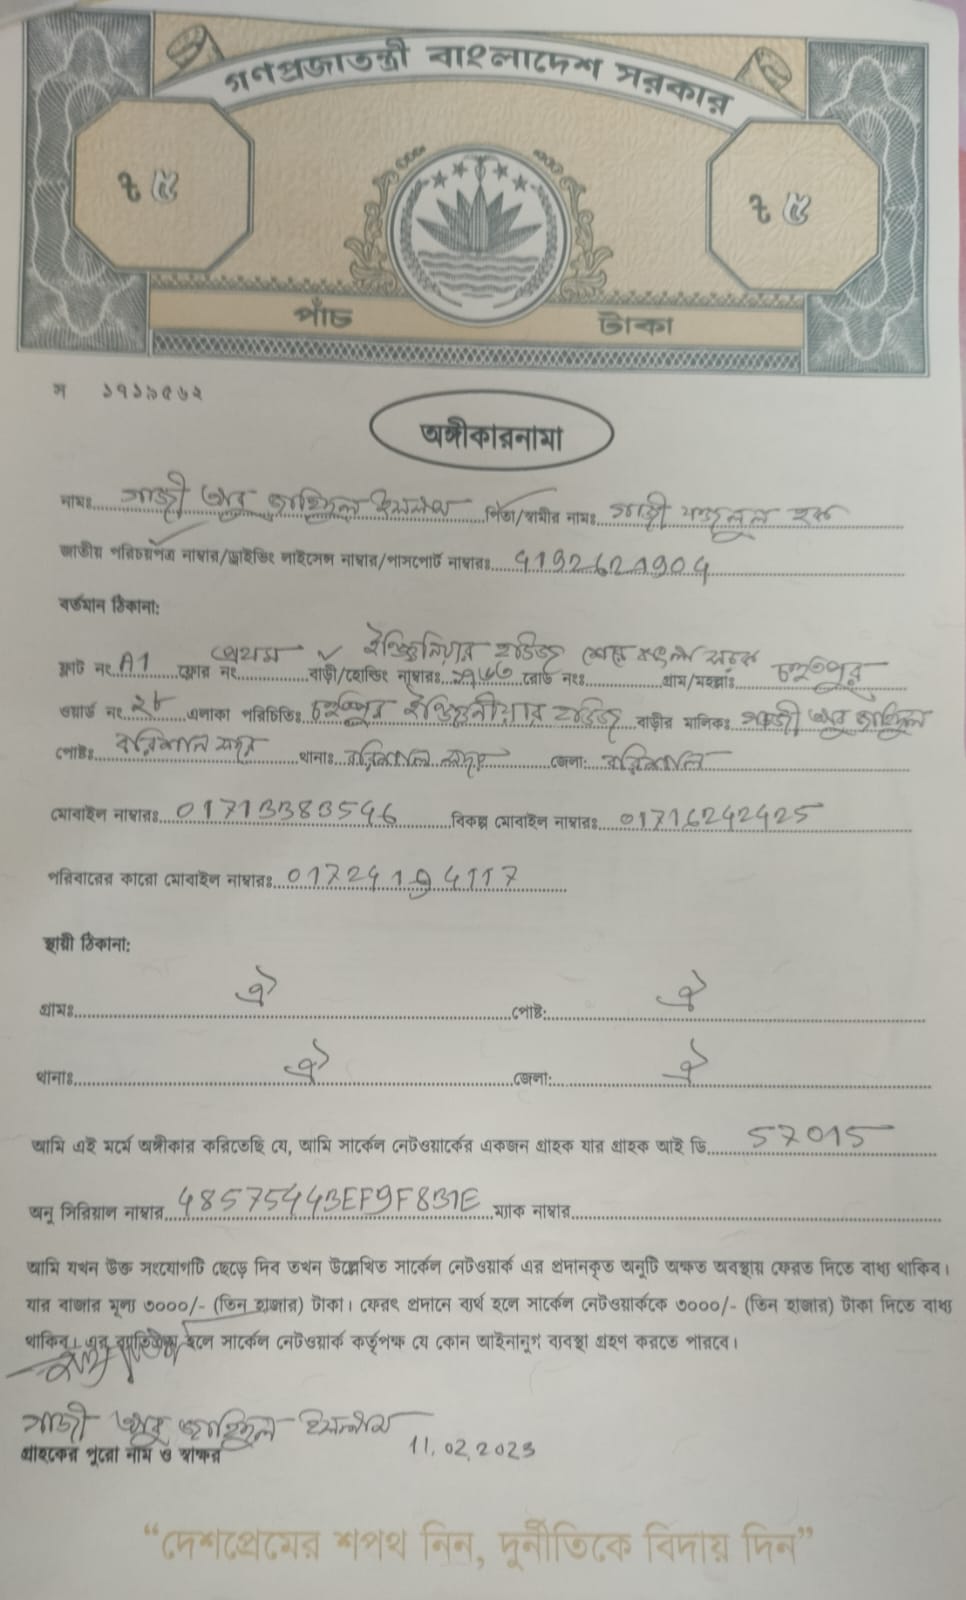 গণপ্রজাতন্ত্রী বাংলাদেশ সরকার
৳ ৫ ৳ ৫
পাঁচ টাকা
স ১৭১৯৫৬২
অঙ্গীকারনামা
নামঃ গাজী আবু জাহিদুল ইসলাম পিতা/স্বামীর নামঃ গাজী হক
জাতীয় পরিচয়পত্র নাম্বার/ড্রাইভিং লাইসেন্স নাম্বার/পাসপোর্ট নাম্বারঃ 4192621904
বর্তমান ঠিকানা:
ফ্ল্যাট নং A1 ফ্লোর নং প্রথম বাড়ী/হোল্ডিং নাম্বারঃ ইঞ্জিনিয়ার হাউজ রোড নংঃ শেরে বাংলা সড়ক গ্রাম/মহল্লাঃ চহুতপুর
ওয়ার্ড নং ২৮ এলাকা পরিচিতিঃ চহুতপুর ইঞ্জিনীয়ার হাউজ বাড়ীর মালিকঃ গাজী আবু জাহিদুল
পোষ্টঃ বরিশাল সদর থানাঃ বরিশাল সদর জেলা: বরিশাল
মোবাইল নাম্বারঃ 01713383546 বিকল্প মোবাইল নাম্বারঃ 01716242425
পরিবারের কারো মোবাইল নাম্বারঃ 01724194117
স্থায়ী ঠিকানা:
গ্রামঃ ঐ পোষ্ট: ঐ
থানাঃ ঐ জেলা: ঐ
আমি এই মর্মে অঙ্গীকার করিতেছি যে, আমি সার্কেল নেটওয়ার্কের একজন গ্রাহক যার গ্রাহক আই ডি 57015
অনু সিরিয়াল নাম্বার 48575443EF9F8B1E ম্যাক নাম্বার
আমি যখন উক্ত সংযোগটি ছেড়ে দিব তখন উল্লেখিত সার্কেল নেটওয়ার্ক এর প্রদানকৃত অনুটি অক্ষত অবস্থায় ফেরত দিতে বাধ্য থাকিব।
যার বাজার মূল্য ৩০০০/- (তিন হাজার) টাকা। ফেরৎ প্রদানে ব্যর্থ হলে সার্কেল নেটওয়ার্ককে ৩০০০/- (তিন হাজার) টাকা দিতে বাধ্য
থাকিব। এর ব্যতিক্রম হলে সার্কেল নেটওয়ার্ক কর্তৃপক্ষ যে কোন আইনানুগ ব্যবস্থা গ্রহণ করতে পারবে।
গাজী আবু জাহিদুল ইসলাম
গ্রাহকের পুরো নাম ও স্বাক্ষর 11.02.2023
“দেশপ্রেমের শপথ নিন, দুর্নীতিকে বিদায় দিন”